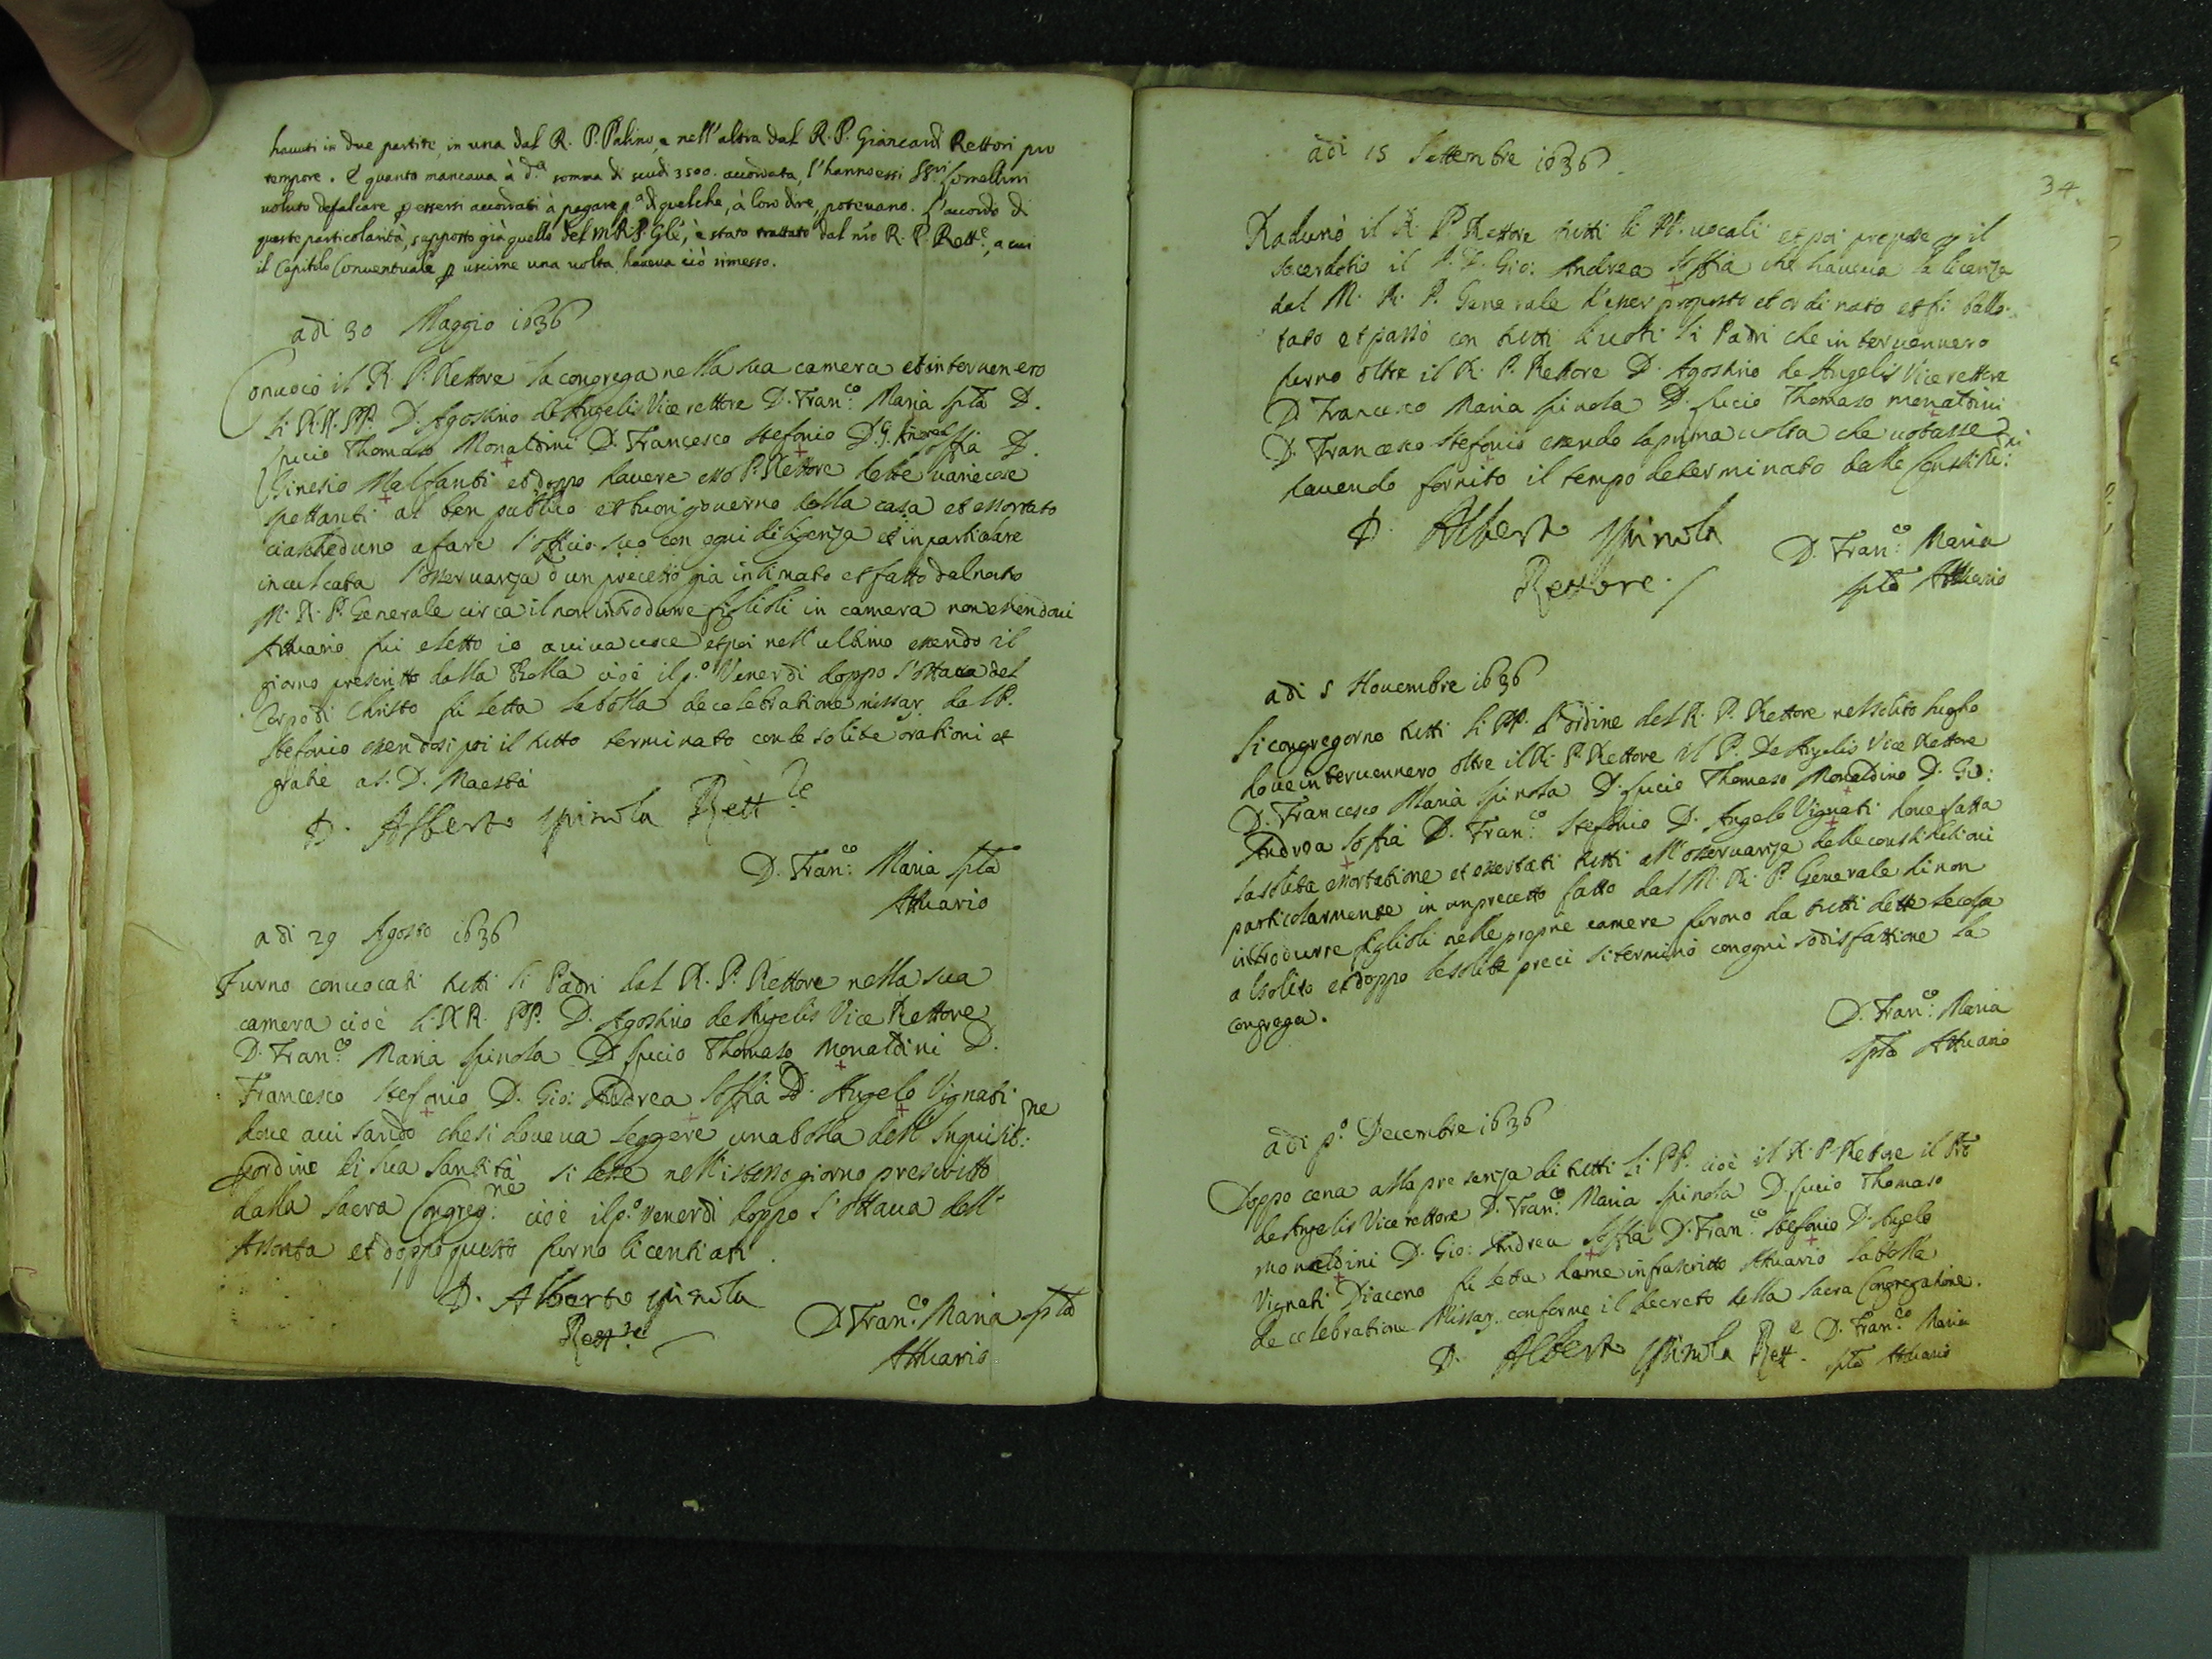 havuti in due partite, in una dal R. P. Palino, e nell'altra dal R. P. Giancardi Rettori pro
tempore. E quanto mancava à d.ª somma di scudi 3500. accordata, l'hanno essi SS.ri Comellini
voluto defalcare p essersi accordati à pagare p.ª di quel che, à loro dire, potevano. L'accordo di
queste particolarità, supposto già quello del M. R. P. Gñle, è stato trattato dal nr̃o R. P. Rett.e, a cui
il Capitolo Conventuale p uscirne una volta haveva ciò rimesso.
adi 30 Maggio 1636
Convocò il R. P. Rettore la congrega nella sua camera et intervenero
li R.R. PP. D. Agostino de Angelis Vice rettore D. Fran.co Maria Spla D.
Lucio Thomaso Monaldini D. Francesco Stefonio D. G. Andrea Soffia D.
Sinesio Malfanti et doppo havere esso P. Rettore dette varie cose
spettanti al ben publico et buon governo della casa et essortato
ciascheduno a fare l'officio suo con ogni diligenza et in particolare
inculcata l'osservanza d'un precetto già intimato et fatto dal nr̃o
M. R. P. Generale circa il non introdurre figlioli in camera non essendovi
Attuario fui eletto io a viva voce et poi nell'ultimo essendo il
giorno prescritto dalla Bolla cioè il p.o Venerdi doppo l'ottava del
Corpo di Christo fu letta la bolla de celebratione missar. dal P.
Stefonio essendosi poi il tutto terminato con le solite orationi et
gratie a S. D. Maestà
D. Alberto Spinola Rett.re
D. Fran.co Maria Spla
Attuario
adi 29 Agosto 1636
Furno convocati tutti li Padri dal R. P. Rettore nella sua
camera cioè li RR. PP. D. Agostino de Angelis Vice Rettore
D. Fran.co Maria Spinola D. Lucio Thomaso Monaldini D.
Francesco Stefonio D. Gio: Andrea Soffia D. Angelo Vignati
dove avisando che si doveva leggere una bolla dell'Inquisit.ne
p ordine di sua santità si lesse nell'istesso giorno prescritto
dalla Sacra Congreg.ne cioè il p.o venerdi doppo l'ottava dell'
Assonta et doppo questo furno licentiati.
D. Alberto Spinola
Rett.re
D. Fran.co Maria Spla
Attuario
34
adi 15 Settembre 1636.
Radunò il R. P. Rettore tutti li PP. vocali et poi propose p il
sacerdotio il P. D. Gio: Andrea Soffia che haveva la licenza
dal M. R. P. Generale d'esser proposto et ordinato et fu ballo-
tato et passò con tutti li voti li Padri che intervennero
furno oltre il R. P. Rettore D. Agostino de Angelis Vice rettore
D. Francesco Maria Spinola D. Lucio Thomaso monaldini
D. Francesco Stefonio essendo la prima volta che votasse
havendo fornito il tempo determinato dalle Constitu:ni
D. Alberto Spinola
Rettore.
D. Fran.co Maria
Spla Attuario
adi 5 Novembre 1636
Si congregorno tutti li PP. d'ordine del R. P. Rettore nel solito luogho
dove intervennero oltre il R. P. Rettore il P. De Angelis Vice Rettore
D. Francesco Maria Spinola D. Lucio Thomaso Monaldino D. Gio:
Andrea Soffia D. Fran.co Stefonio D. Angelo Vignati dove fatta
la solita essortatione et essortati tutti all'osservanza delle constitutioni
particolarmente in un precetto fatto dal M. R. P. Generale di non
introdurre figlioli nelle proprie camere furono da tutti dette le colpe
al solito et doppo le solite preci si terminò con ogni sodisfattione la
congrega.
D. Fran.co Maria
Spla Attuario
adi p.o Decembre 1636
Doppo cena alla presenza di tutti li PP. cioè il R. P. Rettore il Pre
de Angelis Vice rettore D. Fran.co Maria Spinola D. Lucio Thomaso
monaldini D. Gio: Andrea Soffia D. Fran.co Stefonio D. Angelo
Vignati Diacono fu letta da me infrascritto Attuario la bolla
de celebratione Missar. conforme il decreto della Sacra Congregatione.
D. Alberto Spinola Rett.e D. Fran.co Maria
Spla Attuario